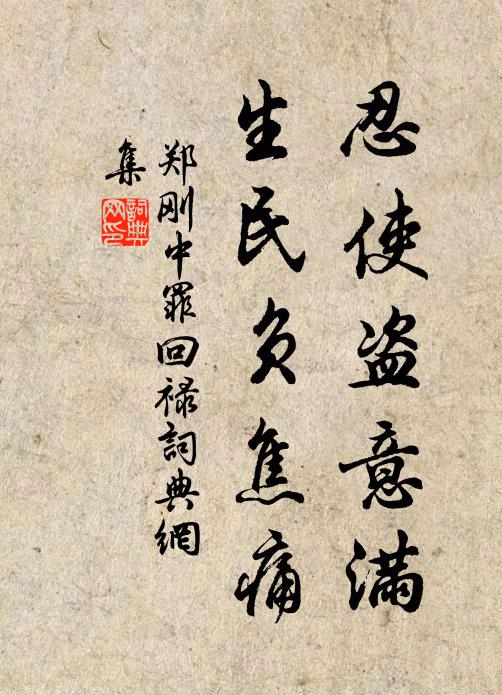 忍使盗意满
生民负焦痛
郑刚中罪回禄詞典網
集
詞典
网印